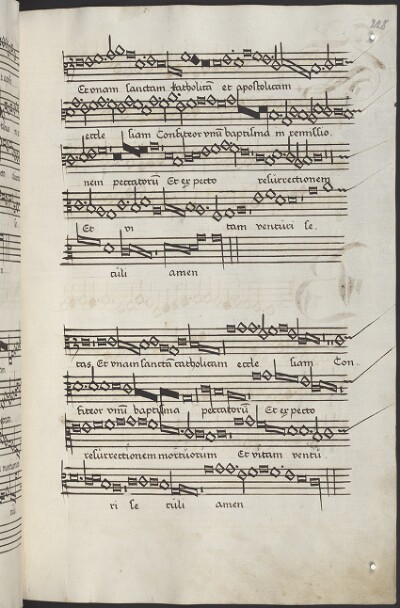 228
Et unam sanctam catholicam et apostolicam
eccle siam Confiteor unū baptisma in remissio.
nem peccatorū Et expecto resurrectionem
Et vi tam venturi se.
culi amen
tas Et unam sanctā catholicam eccle siam Con.
fiteor unū baptisma peccatorū Et expecto
resurrectionem mortuorum Et vitam ventu
ri se culi amen